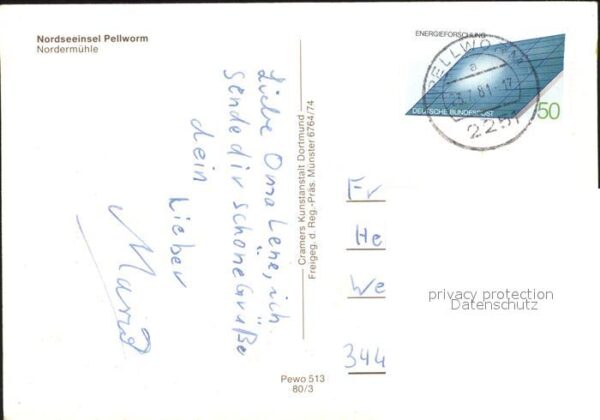 Nordseeinsel Pellworm
Nordermühle
ENERGIEFORSCHUNG
DEUTSCHE BUNDESPOST
50
PELLWORM
a
81.-17
2251
Liebe Oma Lene, ich
sende dir schöne Grüße
dein Lieber
Cramers Kunstanstalt Dortmund
Freigeg. d. Reg.-Präs. Münster 6764/74
Fr
He
We
344
privacy protection
Datenschutz
Pewo 513
80/3